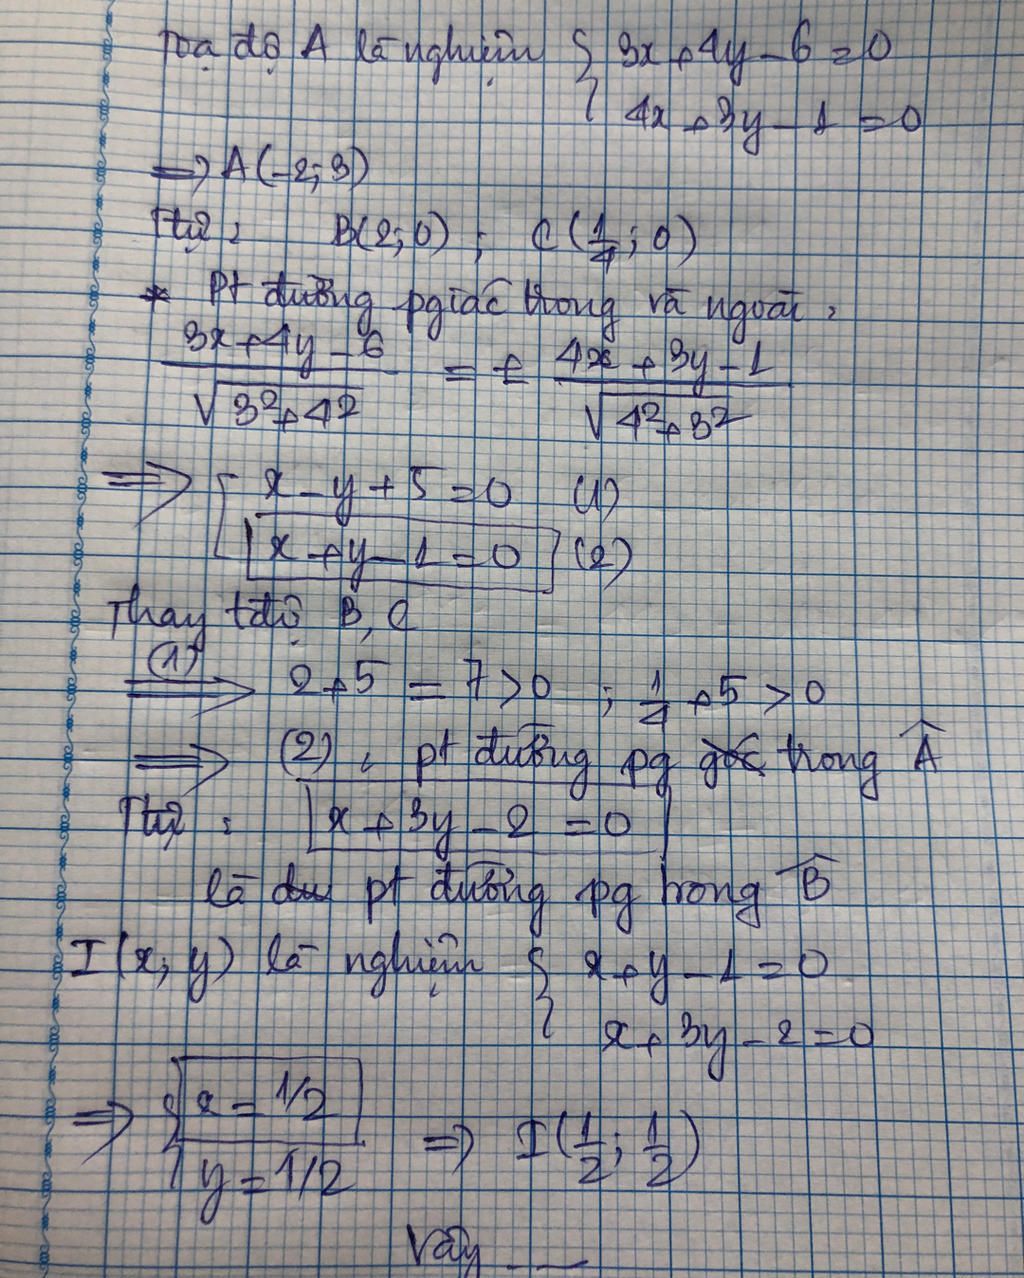 Toạ độ A là nghiệm { 3x + 4y - 6 = 0
4x + 3y - 1 = 0
=> A(-2; 3)
Ttự: B(2; 0) ; C(1/4; 0)
* Pt đường pgiác trong và ngoài:
(3x + 4y - 6)/√(3² + 4²) = ± (4x + 3y - 1)/√(4² + 3²)
=> [ x - y + 5 = 0 (1)
x + y - 1 = 0 (2)
Thay tđộ B, C
(1) => 2 + 5 = 7 > 0 ; 1/4 + 5 > 0
=> (2): pt đường pg trong Â
Ttự: x + 3y - 2 = 0
là pt đường pg trong B̂
I(x; y) là nghiệm { x + y - 1 = 0
x + 3y - 2 = 0
=> { x = 1/2
y = 1/2 => I(1/2; 1/2)
Vậy _ __